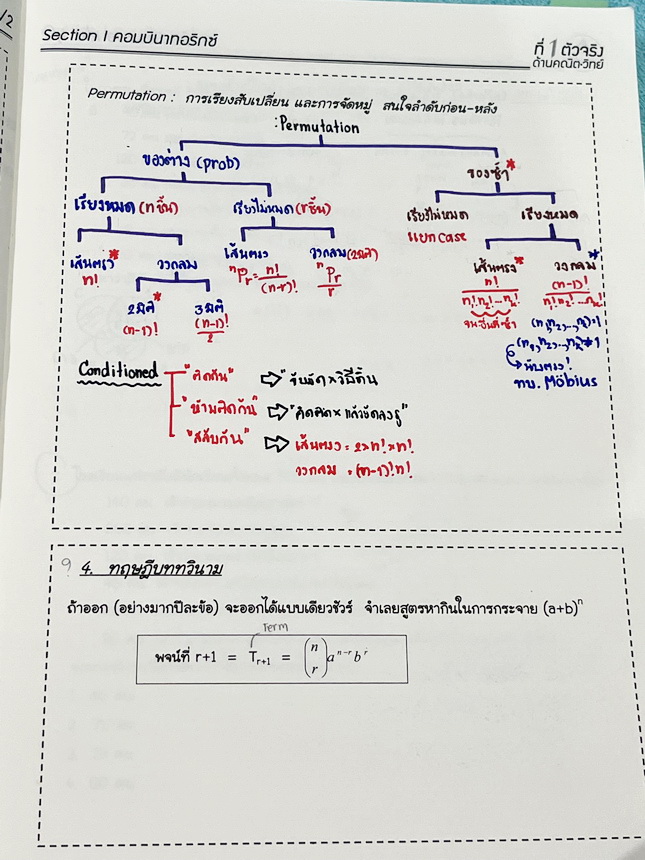 /2
Section I คอมบินาทอริกซ์
ที่ 1 ตัวจริง
ด้านคณิต-วิทย์
Permutation : การเรียงสับเปลี่ยน และการจัดหมู่ สนใจลำดับก่อน-หลัง
:Permutation
ของต่าง (prob)
ของซ้ำ*
เรียงหมด (n ชิ้น)
เรียงไม่หมด (r ชิ้น)
เรียงไม่หมด
แยก case
เรียงหมด
เส้นตรง*
n!
วงกลม
2 มิติ*
(n-1)!
3 มิติ
(n-1)!/2
เส้นตรง
nPr = n!/(n-r)!
วงกลม (2 มิติ)
nPr/r
เส้นตรง*
n!/n₁!n₂!...nₖ!
วงกลม*
(n-1)!/n₁!n₂!...nₖ!
(n₁,n₂,...,nₖ)=1
(n₁,n₂,...,nₖ)≠1
ทบ. Möbius
Conditioned
"ติดกัน" ⇨ "จับมัด × วิธีดิ้น
"ห้ามติดกัน" ⇨
"สลับกัน" ⇨ เส้นตรง = 2×n!×n!
วงกลม = (n-1)!n!
4. ทฤษฎีบททวินาม
ถ้าออก (อย่างมากปีละข้อ) จะออกได้แบบเดียวชัวร์ จำเลยสูตรหากินในการกระจาย (a+b)ⁿ
Term
พจน์ที่ r+1 = Tᵣ₊₁ = (n r) aⁿ⁻ʳ bʳ